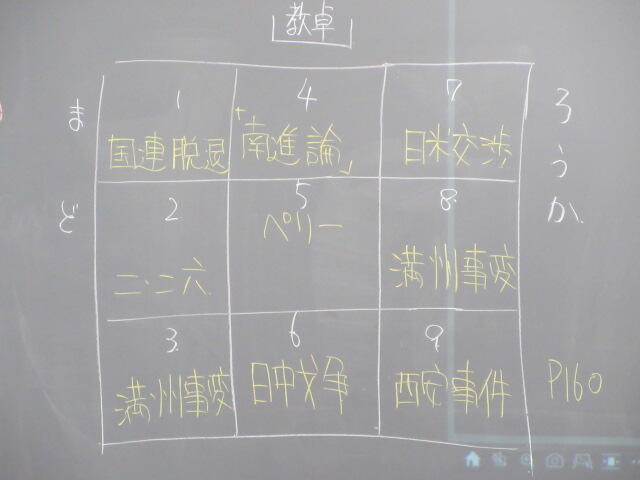 教卓
まど
ろうか
1
国連脱退
4
「南進論」
7
日米交渉
2
二・二六
5
ペリー
8
満州事変
3
満州事変
6
日中戈争
9
西安事件
P160